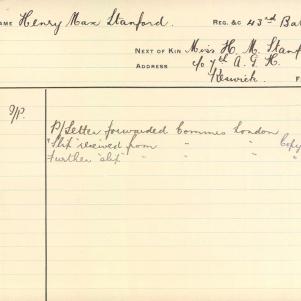 AME Henry Max Stanford. REG. &C 43rd Bat
NEXT OF KIN Miss H. M. Stanf
ADDRESS c/o 7th A. G. H.
Keswick. F
P/Letter forwarded Commes London
"Slip" received from " " Copy
further "slip" " " "